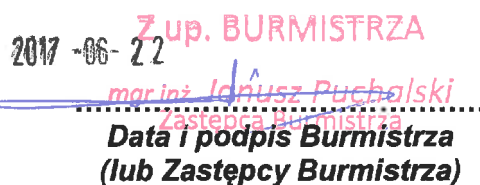 2017 -06- 22
Z up. BURMISTRZA
mgr inż. Janusz Puchalski
Zastępca Burmistrza
Data i podpis Burmistrza
(lub Zastępcy Burmistrza)